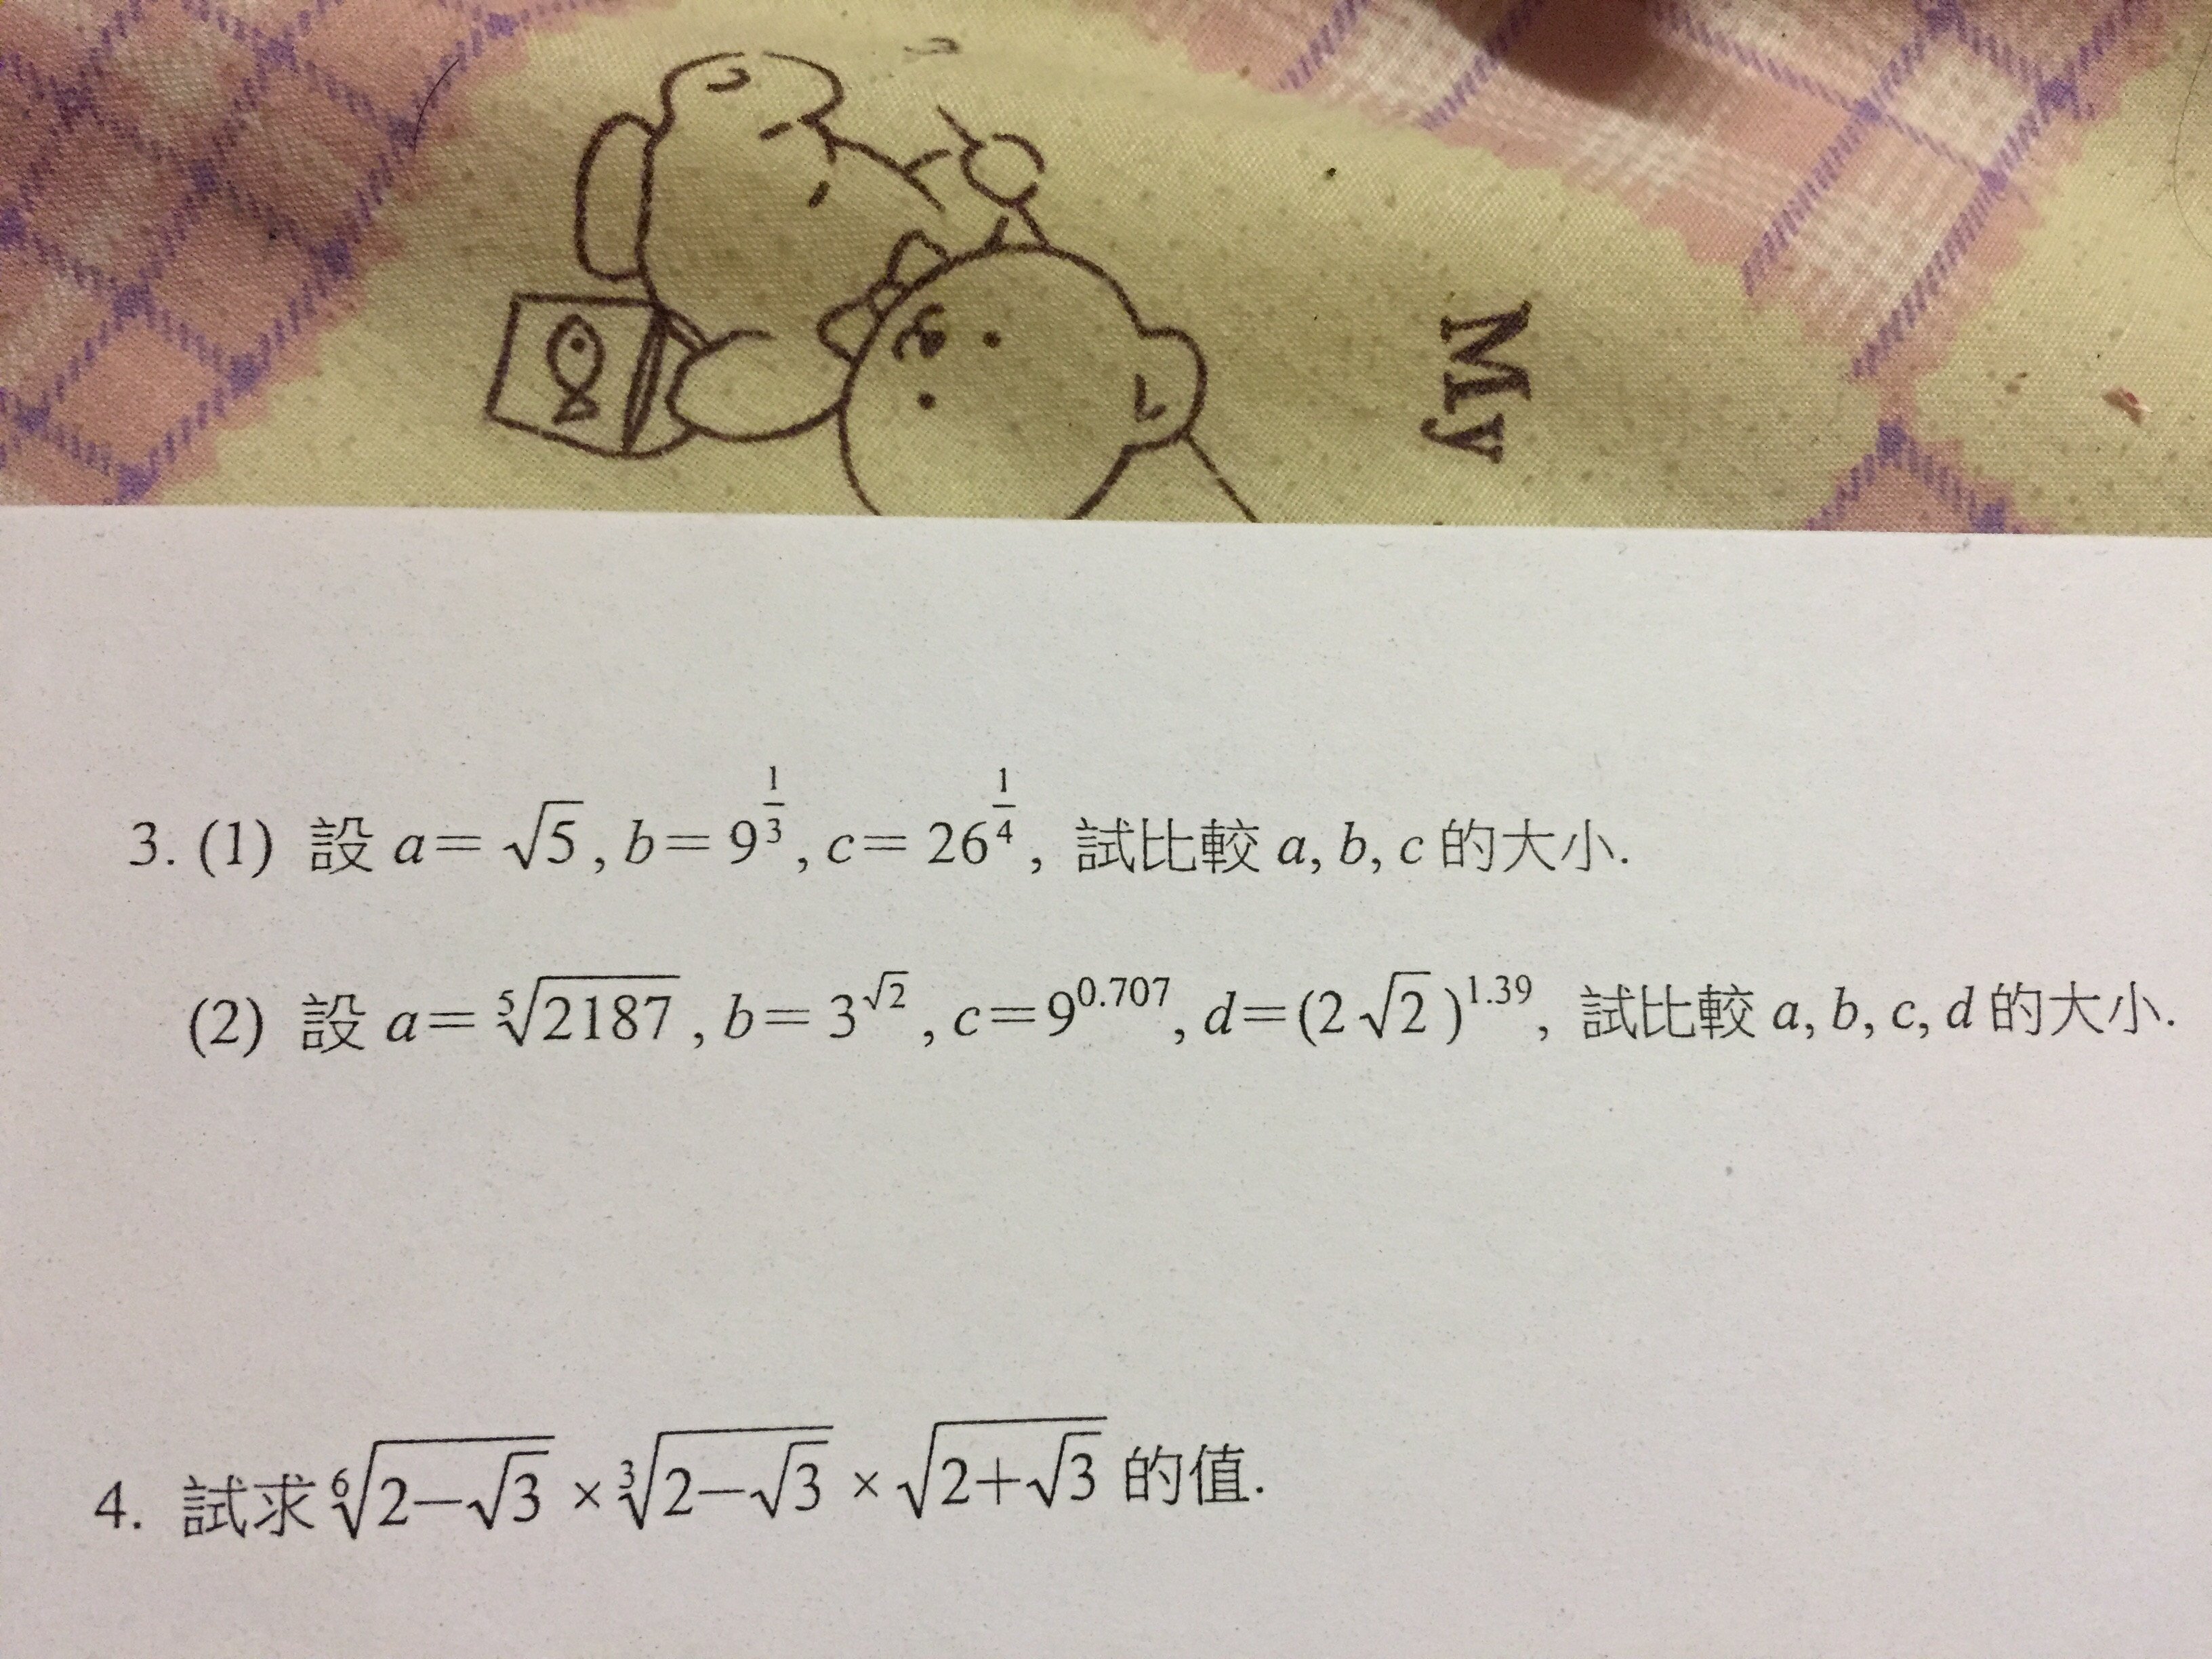 My
3. (1) 設 a = √5 , b = 9^{1/3} , c = 26^{1/4} , 試比較 a, b, c 的大小.
(2) 設 a = ⁵√2187 , b = 3^{√2} , c = 9^{0.707} , d = (2√2)^{1.39} , 試比較 a, b, c, d 的大小.
4. 試求 ⁶√(2−√3) × ³√(2−√3) × √(2+√3) 的值.